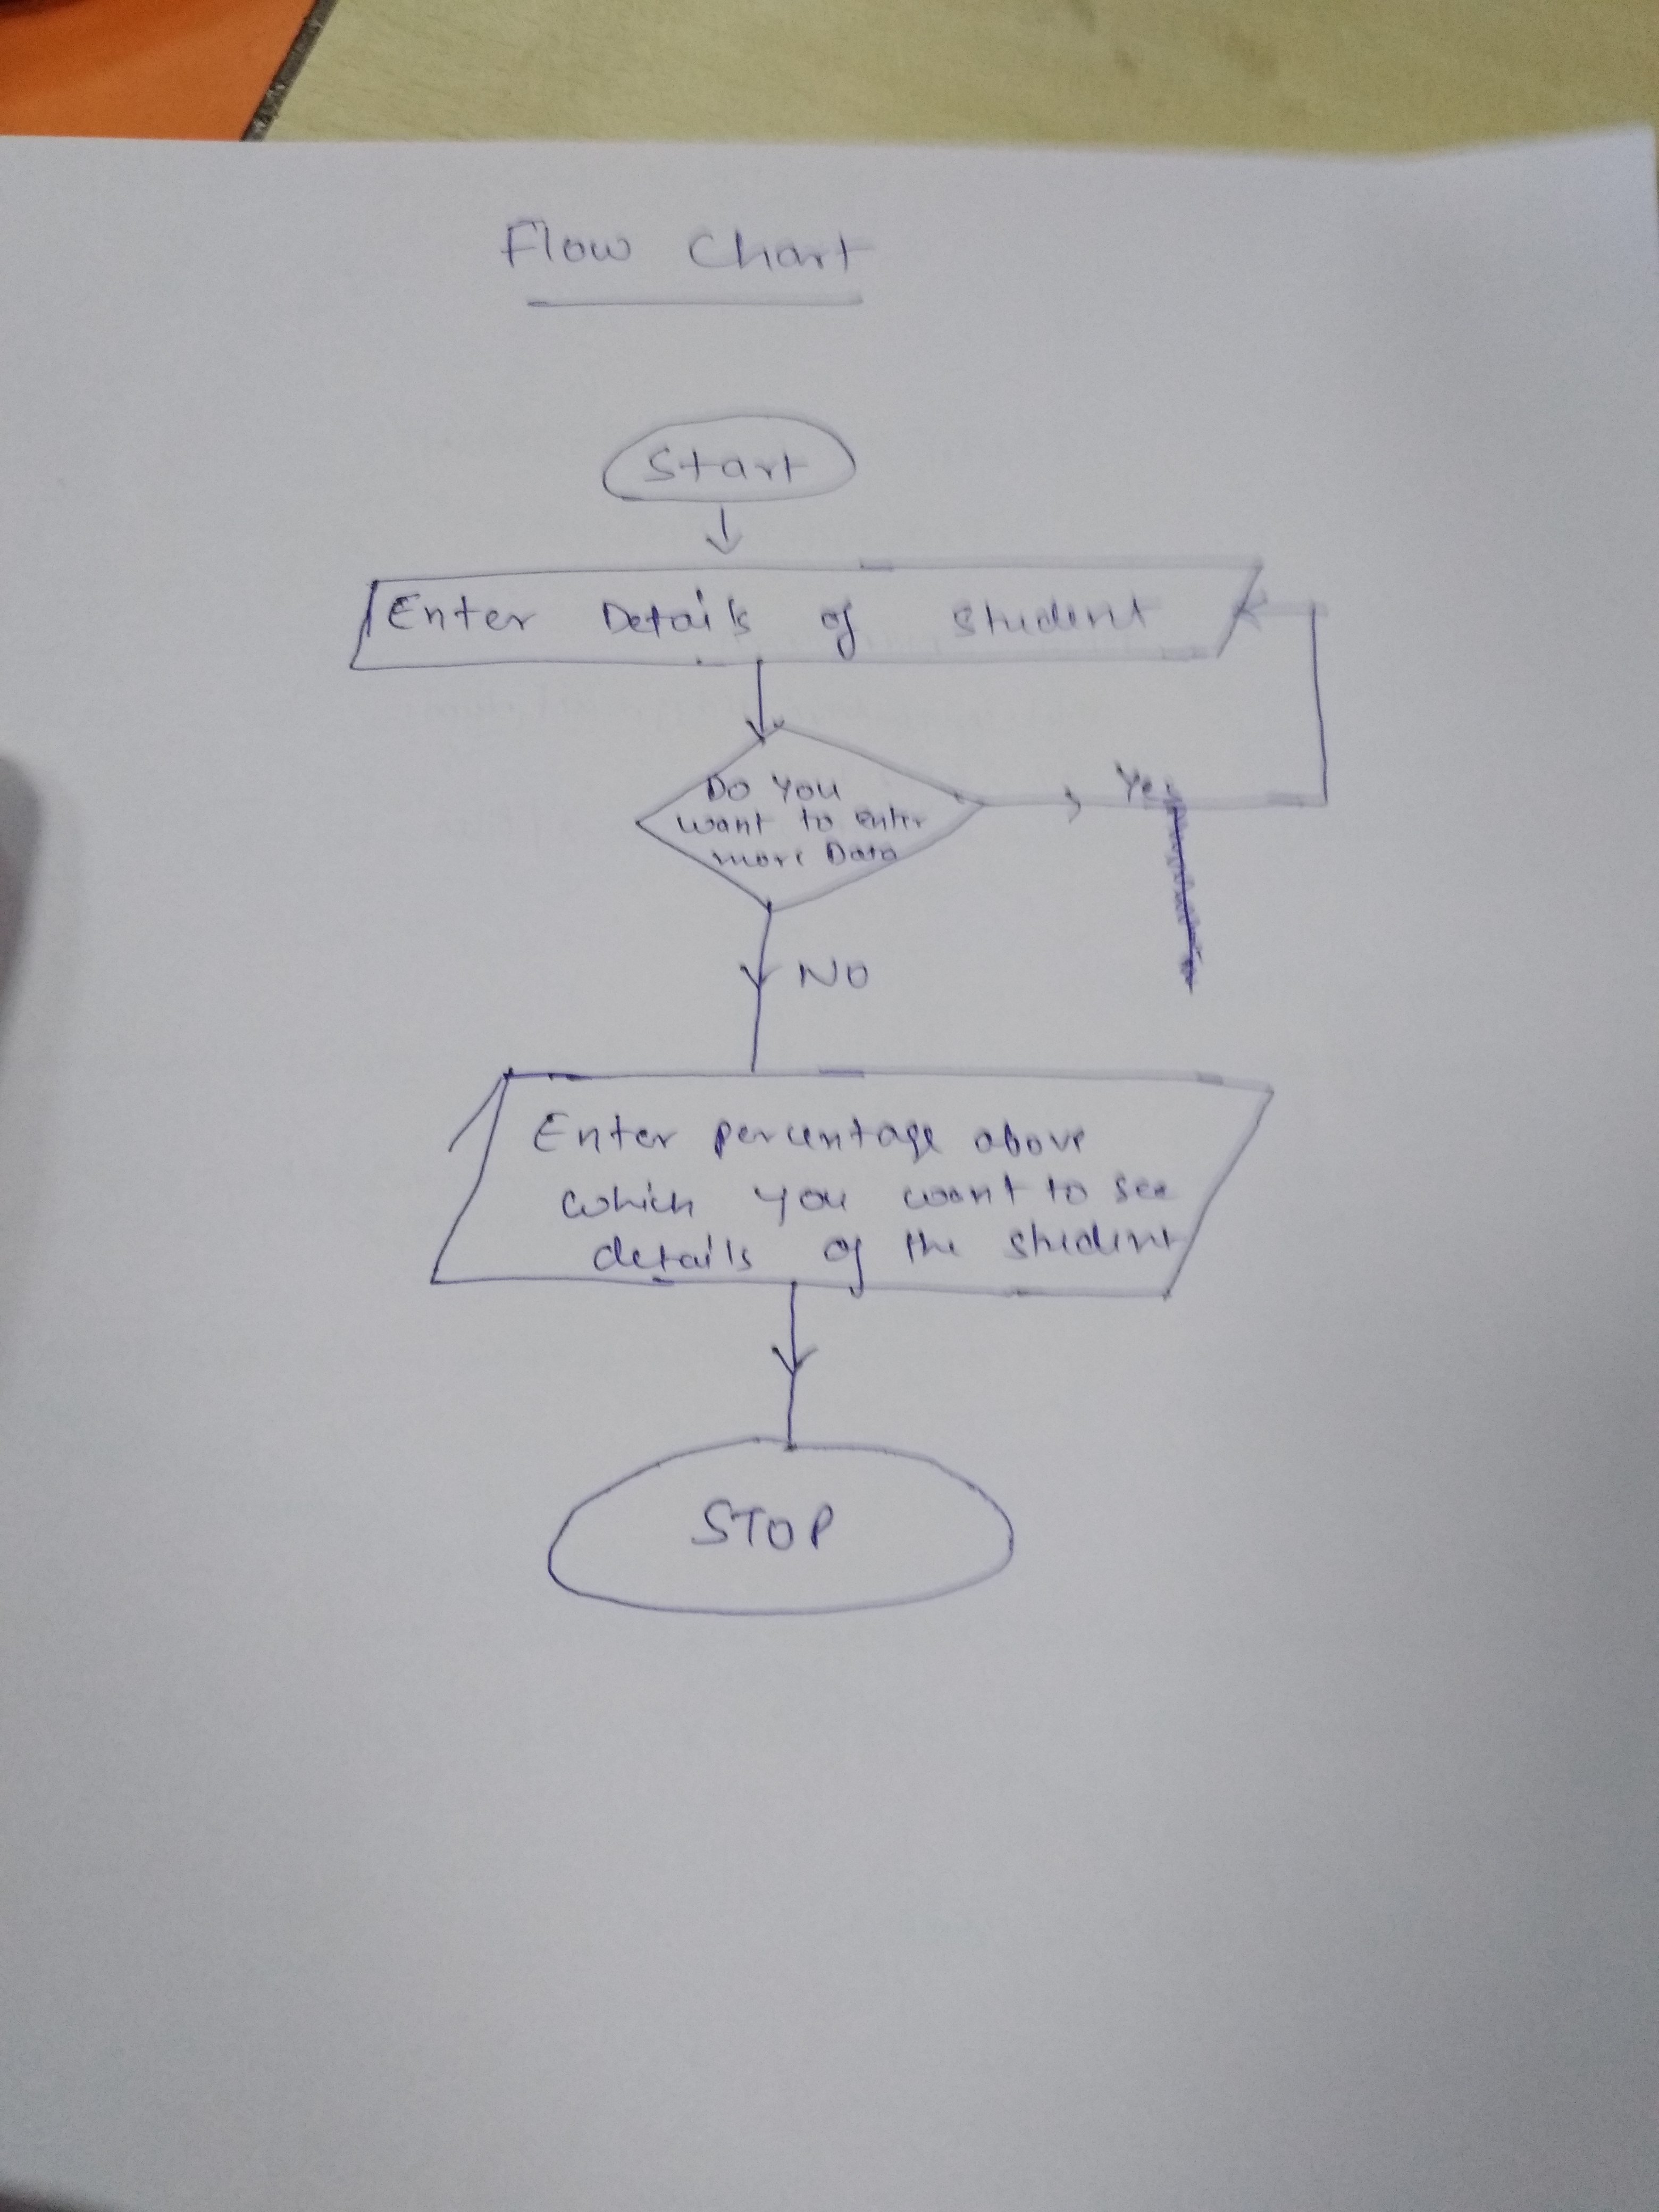 Flow Chart
Start
Enter Details of student
Do You
want to enter
more Data
Yes
NO
Enter percentage above
which you want to see
details of the student
STOP